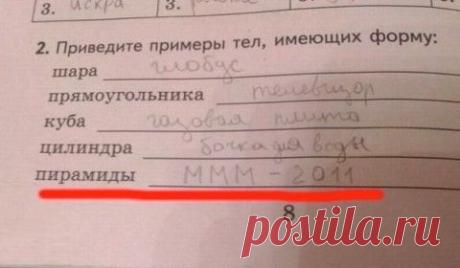 3. искра
3.
2. Приведите примеры тел, имеющих форму:
шара глобус
прямоугольника телевизор
куба газовая плита
цилиндра бочка для воды
пирамиды МММ-2011
8
postila.ru